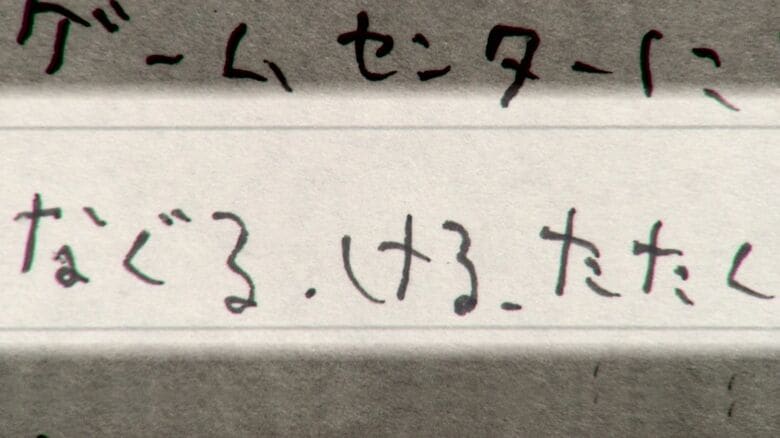 ゲームセンターに
なぐる.ける.たたく